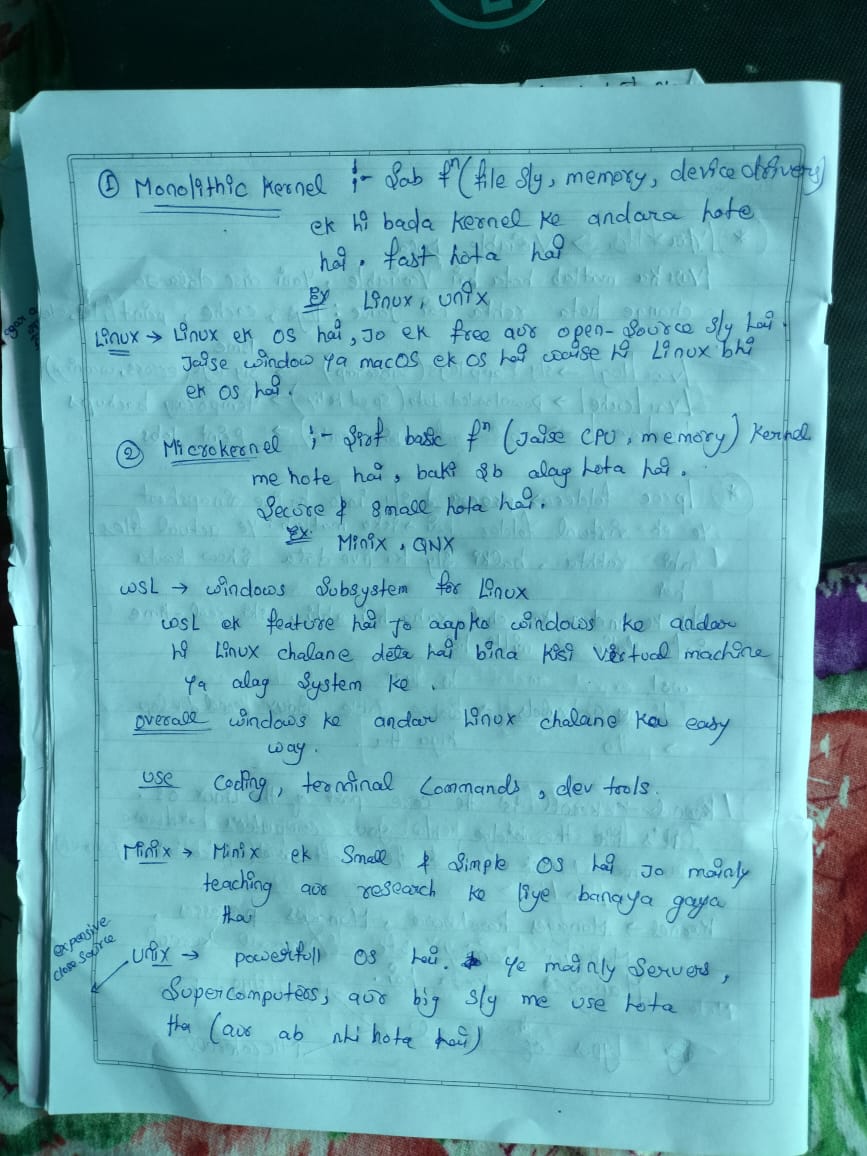 ① Monolithic Kernel :- Sab fⁿ (file sly, memory, device drivers)
ek hi bada kernel ke andara hote
hai. fast hota hai
Ex Linux, Unix
Linux → Linux ek OS hai, Jo ek free aur open-source sly hai.
Jaise window ya macOS ek OS hai waise hi Linux bhi
ek OS hai.
② Microkernel :- Sirf basic fⁿ (Jaise CPU, memory) Kernel
me hote hai, baki sb alag hota hai.
Secure & small hota hai.
Ex. Minix, QNX
WSL → windows Subsystem for Linux
WSL ek feature hai Jo aapko windows ke andar
hi Linux chalane deta hai bina kisi virtual machine
ya alag system ke.
overall windows ke andar Linux chalane ka easy
way.
Use Coding, terminal Commands, dev tools.
Minix → Minix ek Small & Simple OS hai Jo mainly
teaching aur research ke liye banaya gaya
tha
expensive
close source
Unix → powerfull OS hai. ye mainly Servers,
Supercomputers, aur big sly me use hota
tha (aur ab nhi hota hai)